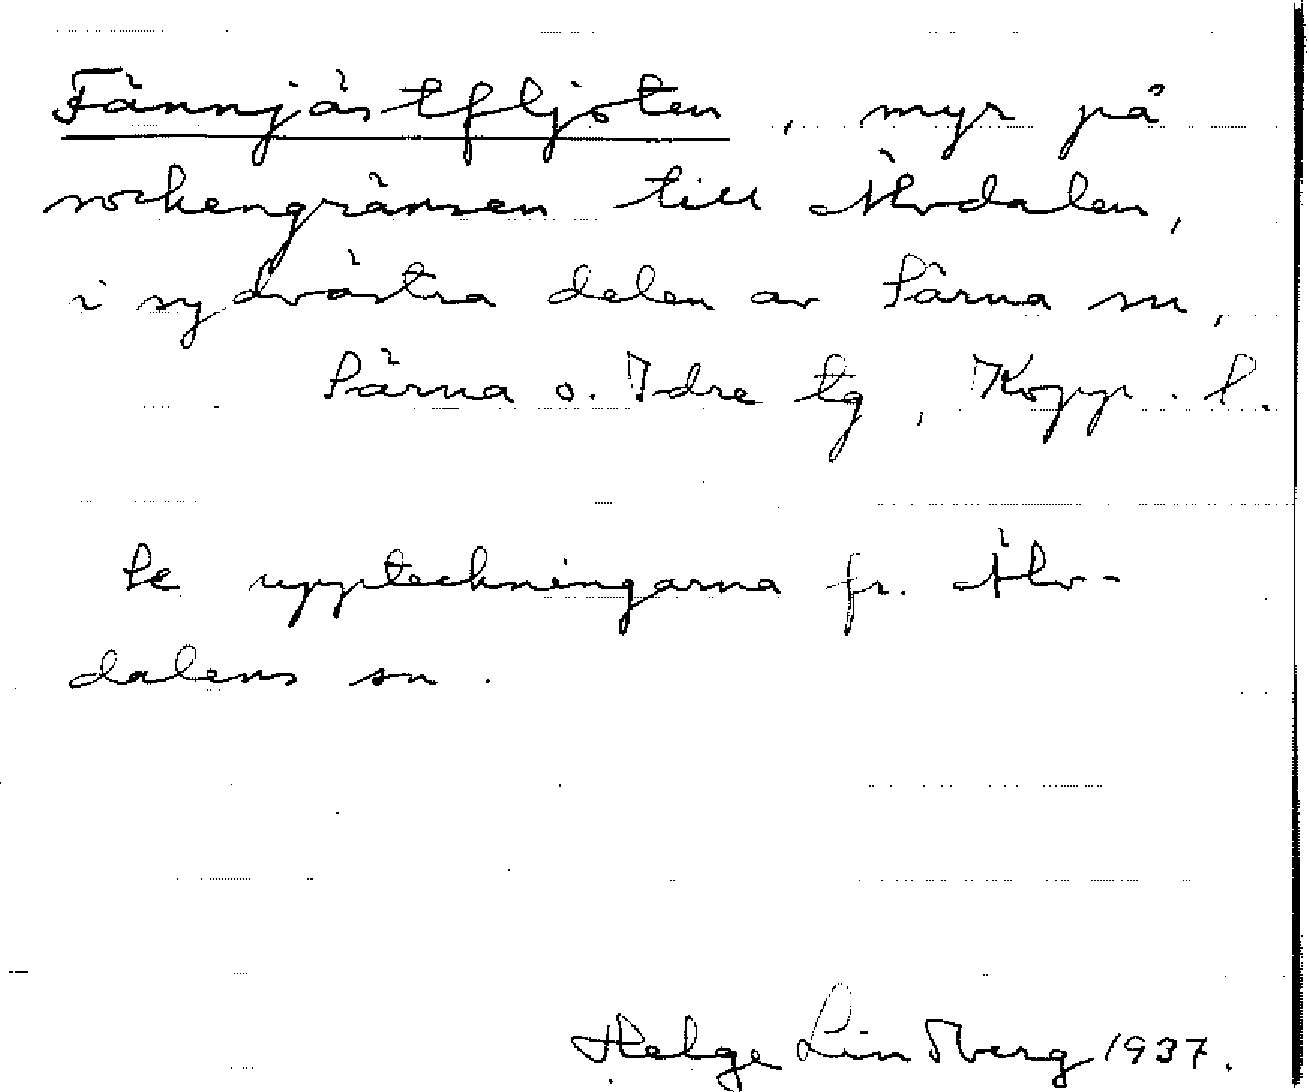 Fännjästfljoten, myr på
sockengränsen till Älvdalen,
i sydvästra delen av Särna sn,
Särna o. Idre tg, Kopp. l.
Se uppteckningarna fr. Älv-
dalens sn.
Helge Lindberg 1937.